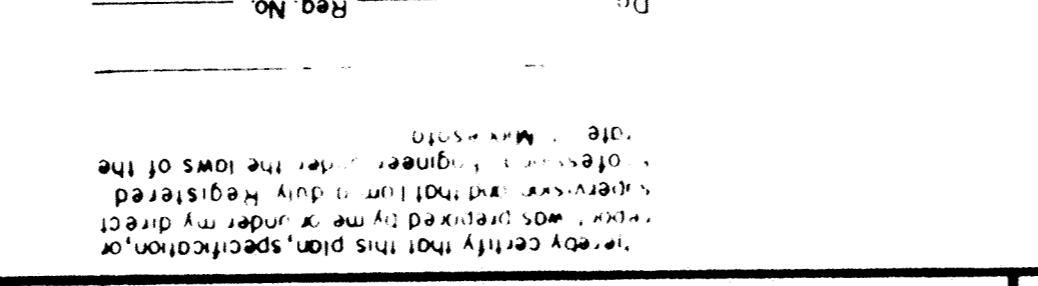 hereby certify that this plan, specification, or
report was prepared by me or under my direct
supervision and that I am a duly Registered
Professional Engineer under the laws of the
state Minnesota
Reg. No.